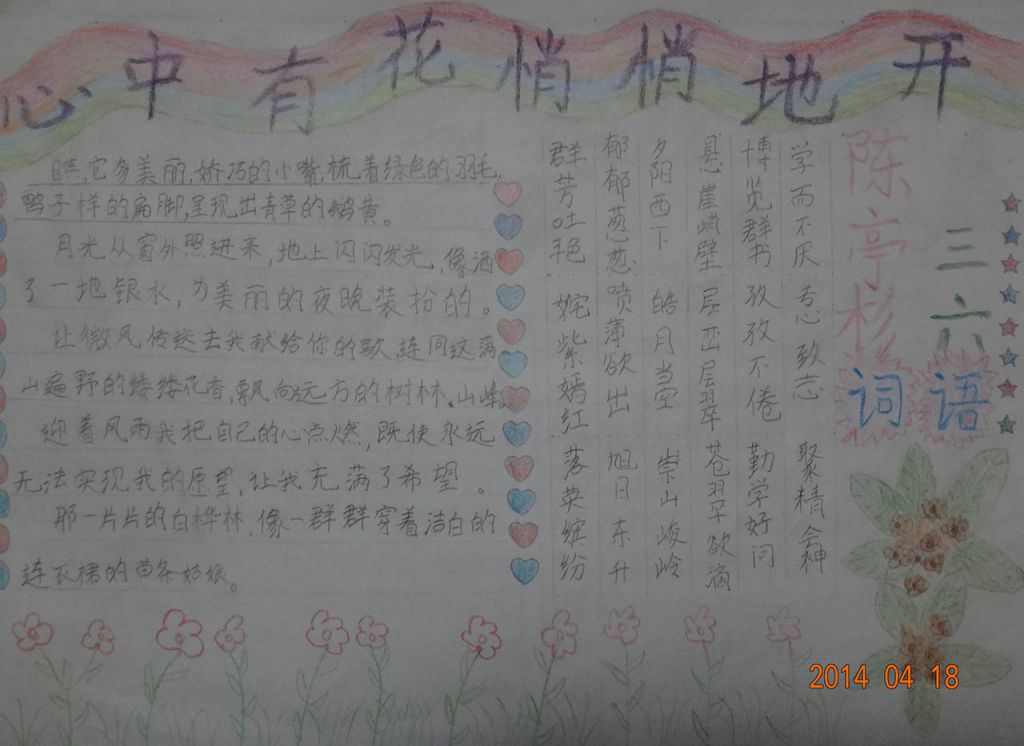 心中有花悄悄地开
瞧,它多美丽,娇巧的小嘴,梳着绿色的羽毛,
鸭子样的扁脚,呈现出青草的鹅黄。
月光从窗外照进来,地上闪闪发光,像洒
了一地银水,为美丽的夜晚装扮的。
让微风传送去我献给你的歌,连同这满
山遍野的缕缕花香,飘向远方的树林、山峰。
迎着风雨我把自己的心点燃,既使永远
无法实现我的愿望,让我充满了希望。
那一片片的白桦林,像一群群穿着洁白的
连衣裙的苗条姑娘。
陈亭杉
三六
词语
学而不厌 专心致志 聚精会神
博览群书 孜孜不倦 勤学好问
悬崖峭壁 层峦层翠 苍翠欲滴
夕阳西下 皓月当空 崇山峻岭
郁郁葱葱 喷薄欲出 旭日东升
群芳吐艳 姹紫嫣红 落英缤纷
2014 04 18